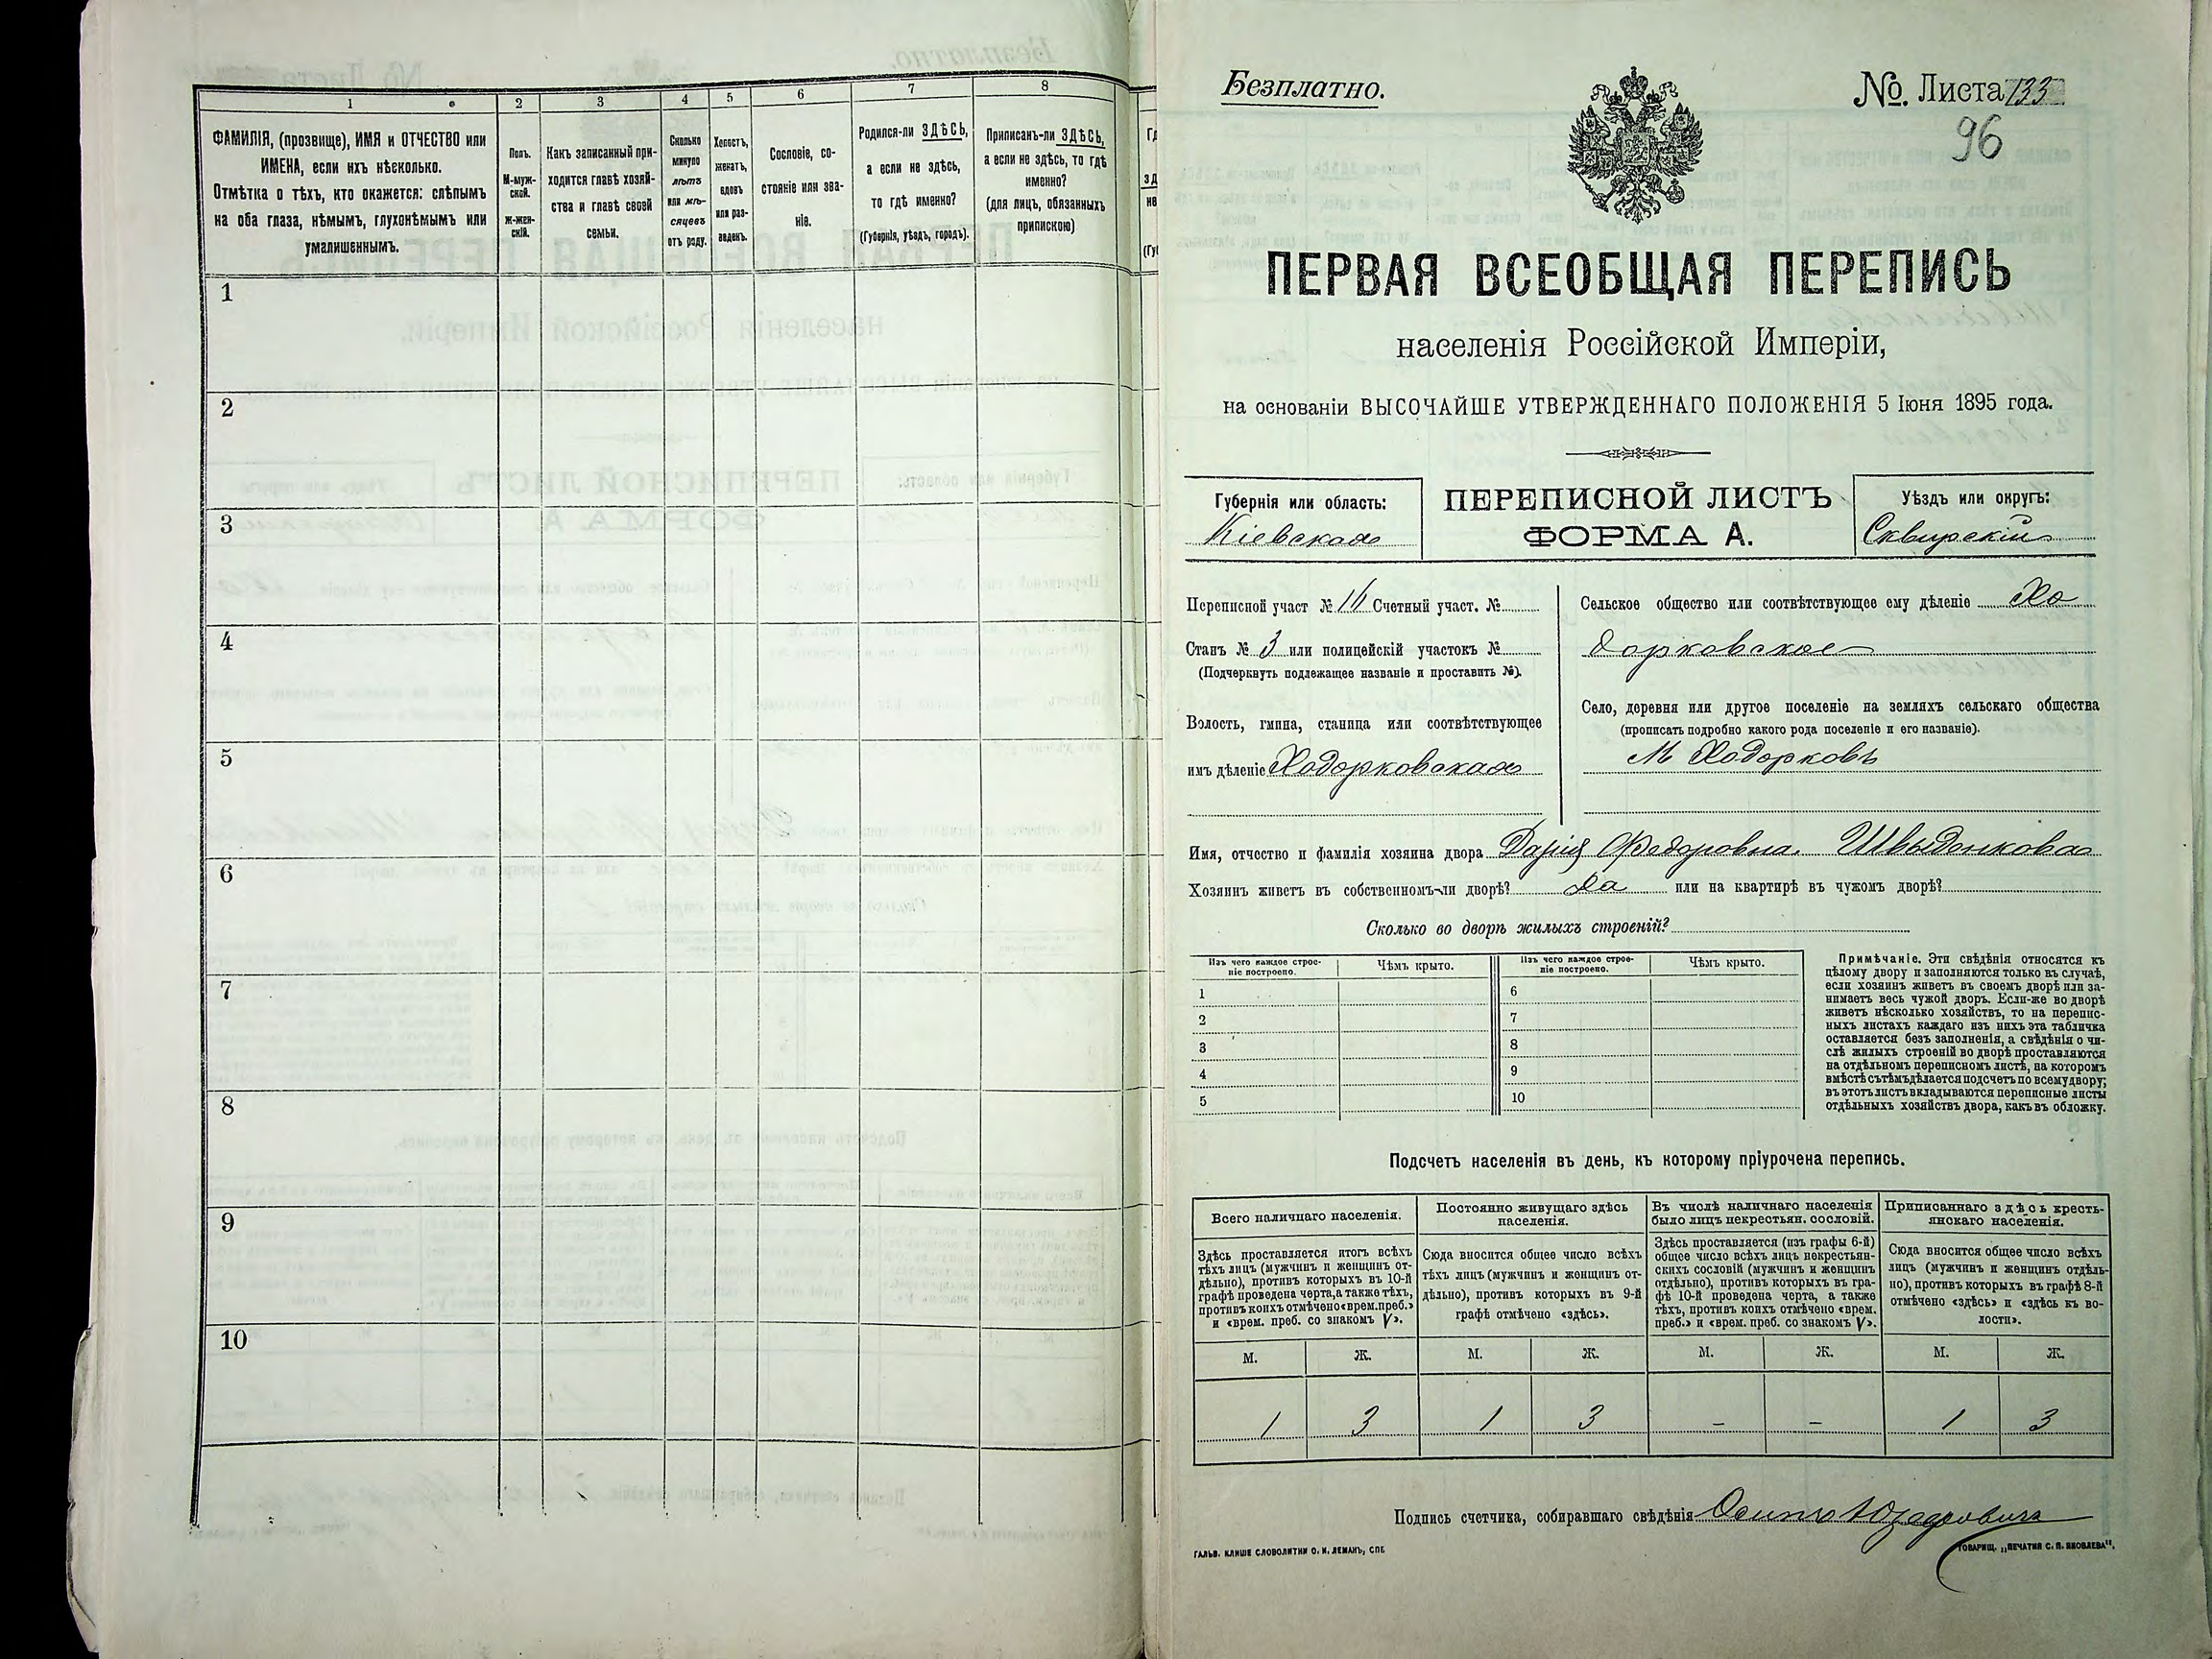 1 2 3 4 5 6 7 8
ФАМИЛІЯ, (прозвище), ИМЯ и ОТЧЕСТВО или
ИМЕНА, если ихъ нѣсколько.
Отмѣтка о тѣхъ, кто окажется: слѣпымъ
на оба глаза, нѣмымъ, глухонѣмымъ или
умалишеннымъ.
Полъ.
М-муж-
ской.
ж-жен-
скій.
Какъ записанный при-
ходится главѣ хозяй-
ства и главѣ своей
семьи.
Сколько
минуло
лѣтъ
или мѣ-
сяцевъ
отъ роду.
Холостъ,
женатъ,
вдовъ
или раз-
веденъ.
Сословіе, со-
стояніе или зва-
ніе.
Родился-ли ЗДѢСЬ,
а если не здѣсь,
то гдѣ именно?
(Губернія, уѣздъ, городъ).
Приписанъ-ли ЗДѢСЬ,
а если не здѣсь, то гдѣ
именно?
(для лицъ, обязанныхъ
припискою)
1
2
3
4
5
6
7
8
9
10
Безплатно.
№. Листа 133
96
ПЕРВАЯ ВСЕОБЩАЯ ПЕРЕПИСЬ
населенія Россійской Имперіи,
на основаніи ВЫСОЧАЙШЕ УТВЕРЖДЕННАГО ПОЛОЖЕНІЯ 5 Іюня 1895 года.
Губернія или область:
Кіевская
ПЕРЕПИСНОЙ ЛИСТЪ
ФОРМА А.
Уѣздъ или округъ:
Сквирскій
Переписной участ № 16 Счетный участ. №
Станъ № 3 или полицейскій участокъ №
(Подчеркнуть подлежащее названіе и проставить №).
Волость, гмина, станица или соотвѣтствующее
имъ дѣленіе Ходорковская
Сельское общество или соотвѣтствующее ему дѣленіе Хо
дорковское
Село, деревня или другое поселеніе на земляхъ сельскаго общества
(прописать подробно какого рода поселеніе и его названіе).
М Ходорковъ
Имя, отчество и фамилія хозяина двора Дарія Федоровна Швыденкова
Хозяинъ живетъ въ собственномъ-ли дворѣ? Да или на квартирѣ въ чужомъ дворѣ?
Сколько во дворѣ жилыхъ строеній?
Изъ чего каждое строе-
ніе построено.
Чѣмъ крыто.
Изъ чего каждое строе-
ніе построено.
Чѣмъ крыто.
1 6
2 7
3 8
4 9
5 10
Примѣчаніе. Эти свѣдѣнія относятся къ
цѣлому двору и заполняются только въ случаѣ,
если хозяинъ живетъ въ своемъ дворѣ или за-
нимаетъ весь чужой дворъ. Если-же во дворѣ
живетъ нѣсколько хозяйствъ, то на перепис-
ныхъ листахъ каждаго изъ нихъ эта табличка
оставляется безъ заполненія, а свѣдѣнія о чи-
слѣ жилыхъ строеній во дворѣ проставляются
на отдѣльномъ переписномъ листѣ, на которомъ
вмѣстѣ съ тѣмъ дѣлается подсчетъ по всему двору;
въ этотъ листъ вкладываются переписные листы
отдѣльныхъ хозяйствъ двора, какъ въ обложку.
Подсчетъ населенія въ день, къ которому пріурочена перепись.
Всего наличнаго населенія.
Здѣсь проставляется итогъ всѣхъ
тѣхъ лицъ (мужчинъ и женщинъ от-
дѣльно), противъ которыхъ въ 10-й
графѣ проведена черта, а также тѣхъ,
противъ коихъ отмѣчено «врем. преб.»
и «врем. преб. со знакомъ V».
Постоянно живущаго здѣсь
населенія.
Сюда вносится общее число всѣхъ
тѣхъ лицъ (мужчинъ и женщинъ от-
дѣльно), противъ которыхъ въ 9-й
графѣ отмѣчено «здѣсь».
Въ числѣ наличнаго населенія
было лицъ некрестьян. сословій.
Здѣсь проставляется (изъ графы 6-й)
общее число всѣхъ лицъ некрестьян-
скихъ сословій (мужчинъ и женщинъ
отдѣльно), противъ которыхъ въ гра-
фѣ 10-й проведена черта, а также
тѣхъ, противъ коихъ отмѣчено «врем.
преб.» и «врем. преб. со знакомъ V».
Приписаннаго здѣсь кресть-
янскаго населенія.
Сюда вносится общее число всѣхъ
лицъ (мужчинъ и женщинъ отдѣль-
но), противъ которыхъ въ графѣ 8-й
отмѣчено «здѣсь» и «здѣсь къ во-
лости».
М. Ж. М. Ж. М. Ж. М. Ж.
1 3 1 3 – – 1 3
Подпись счетчика, собиравшаго свѣдѣнія Осипъ
ГАЛЬВ. КЛИШЕ СЛОВОЛИТНИ О. И. ЛЕМАНЪ, СПБ.
ТОВАРИЩ. „ПЕЧАТНЯ С. П. ЯКОВЛЕВА".